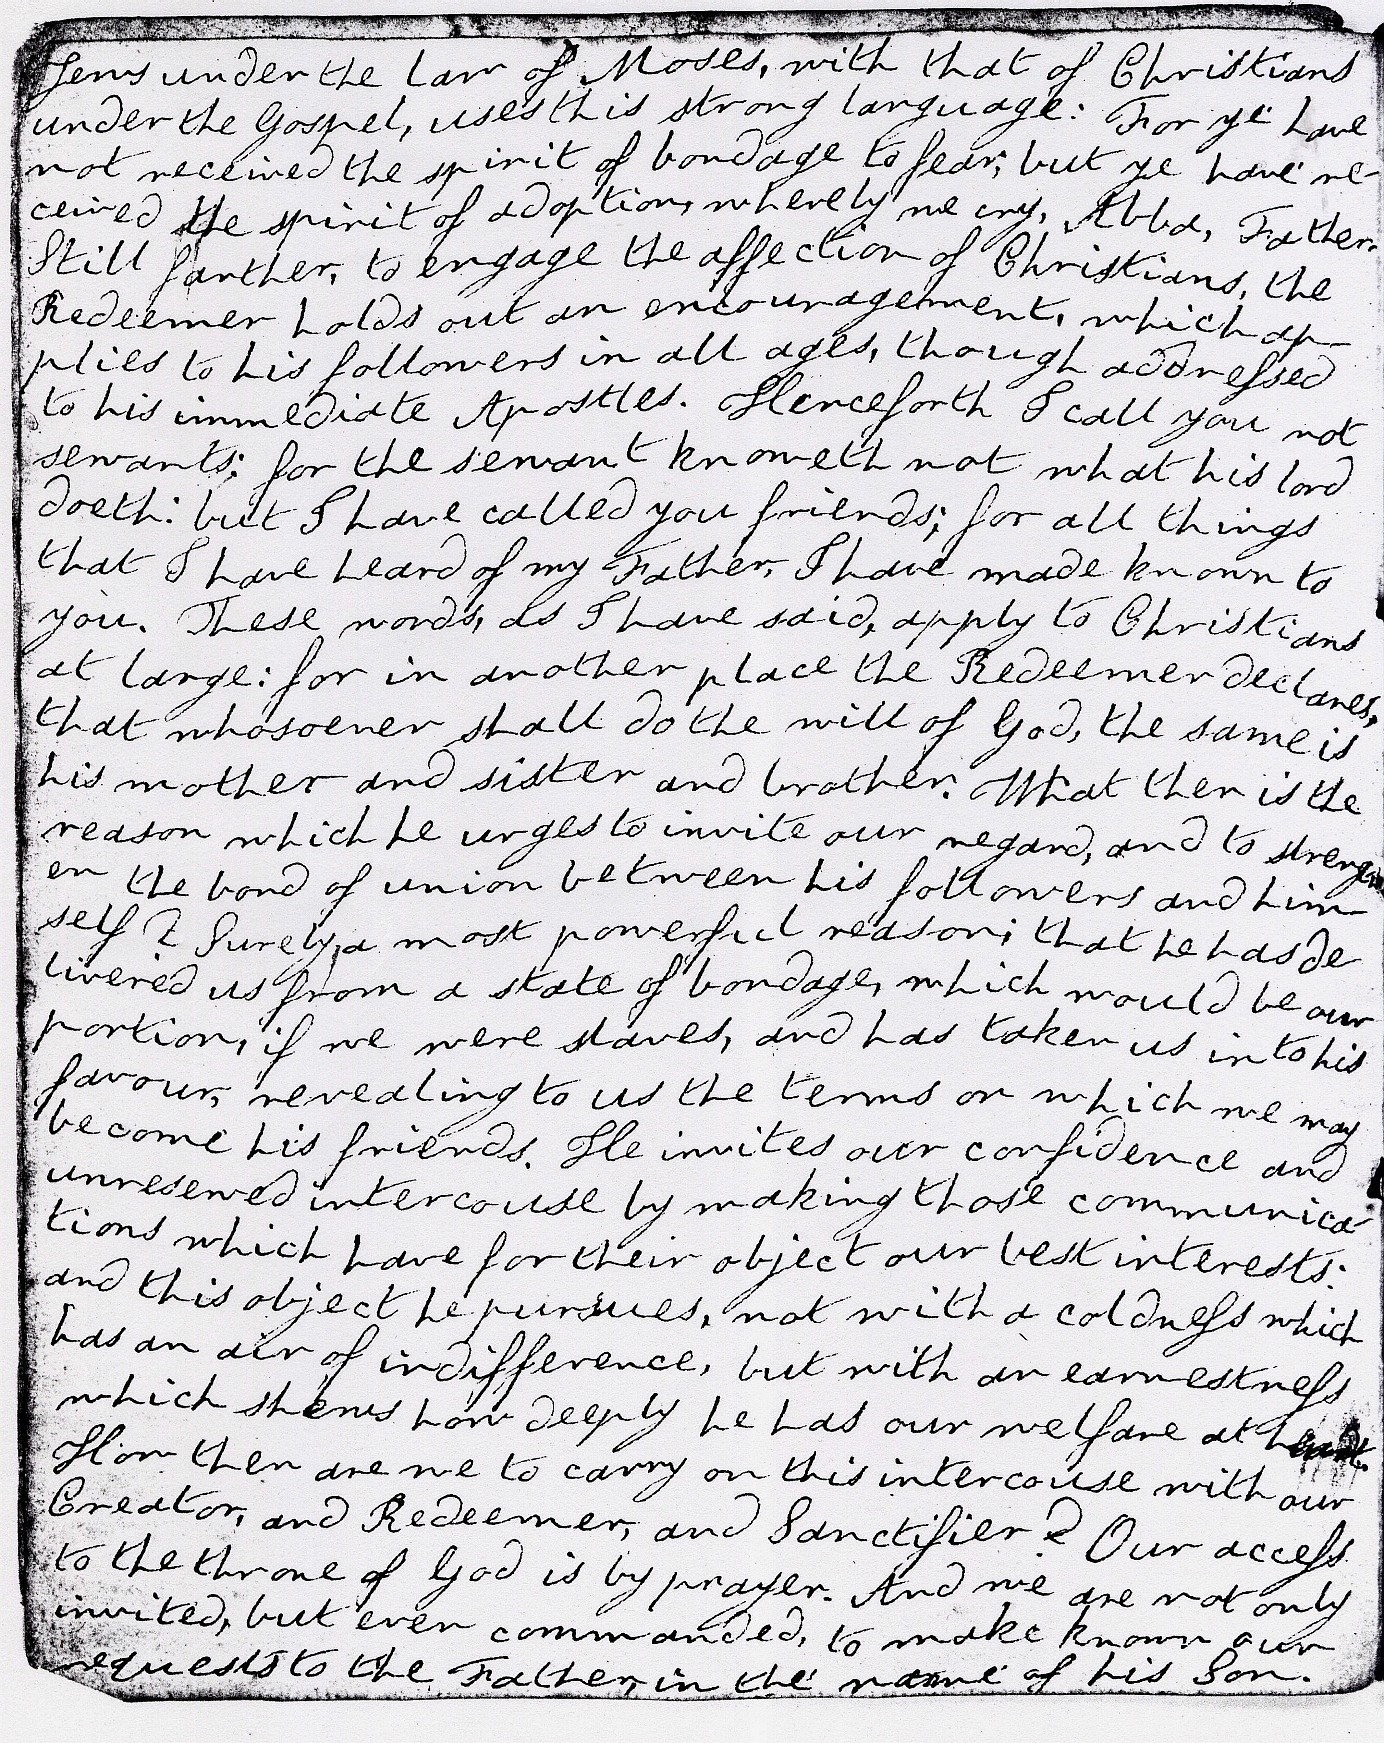 Jews under the law of Moses, with that of Christians
under the Gospel, uses this strong language: For ye have
not received the spirit of bondage to fear; but ye have re-
ceived the spirit of adoption, whereby we cry, Abba, Father.
Still farther, to engage the affection of Christians, the
Redeemer holds out an encouragement, which ap-
plies to his followers in all ages, though addressed
to his immediate Apostles. Henceforth I call you not
servants; for the servant knoweth not what his lord
doeth: but I have called you friends; for all things
that I have heard of my Father, I have made known to
you. These words, as I have said, apply to Christians
at large: for in another place the Redeemer declares,
that whosoever shall do the will of God, the same is
his mother and sister and brother. What then is the
reason which he urges to invite our regard, and to strength
en the bond of union between his followers and him-
self? Surely, a most powerful reason; that he has de
livered us from a state of bondage, which would be our
portion, if we were slaves, and has taken us into his
favour, revealing to us the terms on which we may
become his friends. He invites our confidence and
unreserved intercouse by making those communica-
tions which have for their object our best interests:
and this object he pursues, not with a coldness which
has an air of indifference, but with an earnestness
which shews how deeply he has our welfare at heart.
How then are we to carry on this intercouse with our
Creator, and Redeemer, and Sanctifier? Our access
to the throne of God is by prayer. And we are not only
invited, but even commanded, to make known our
requests to the Father, in the name of his Son.